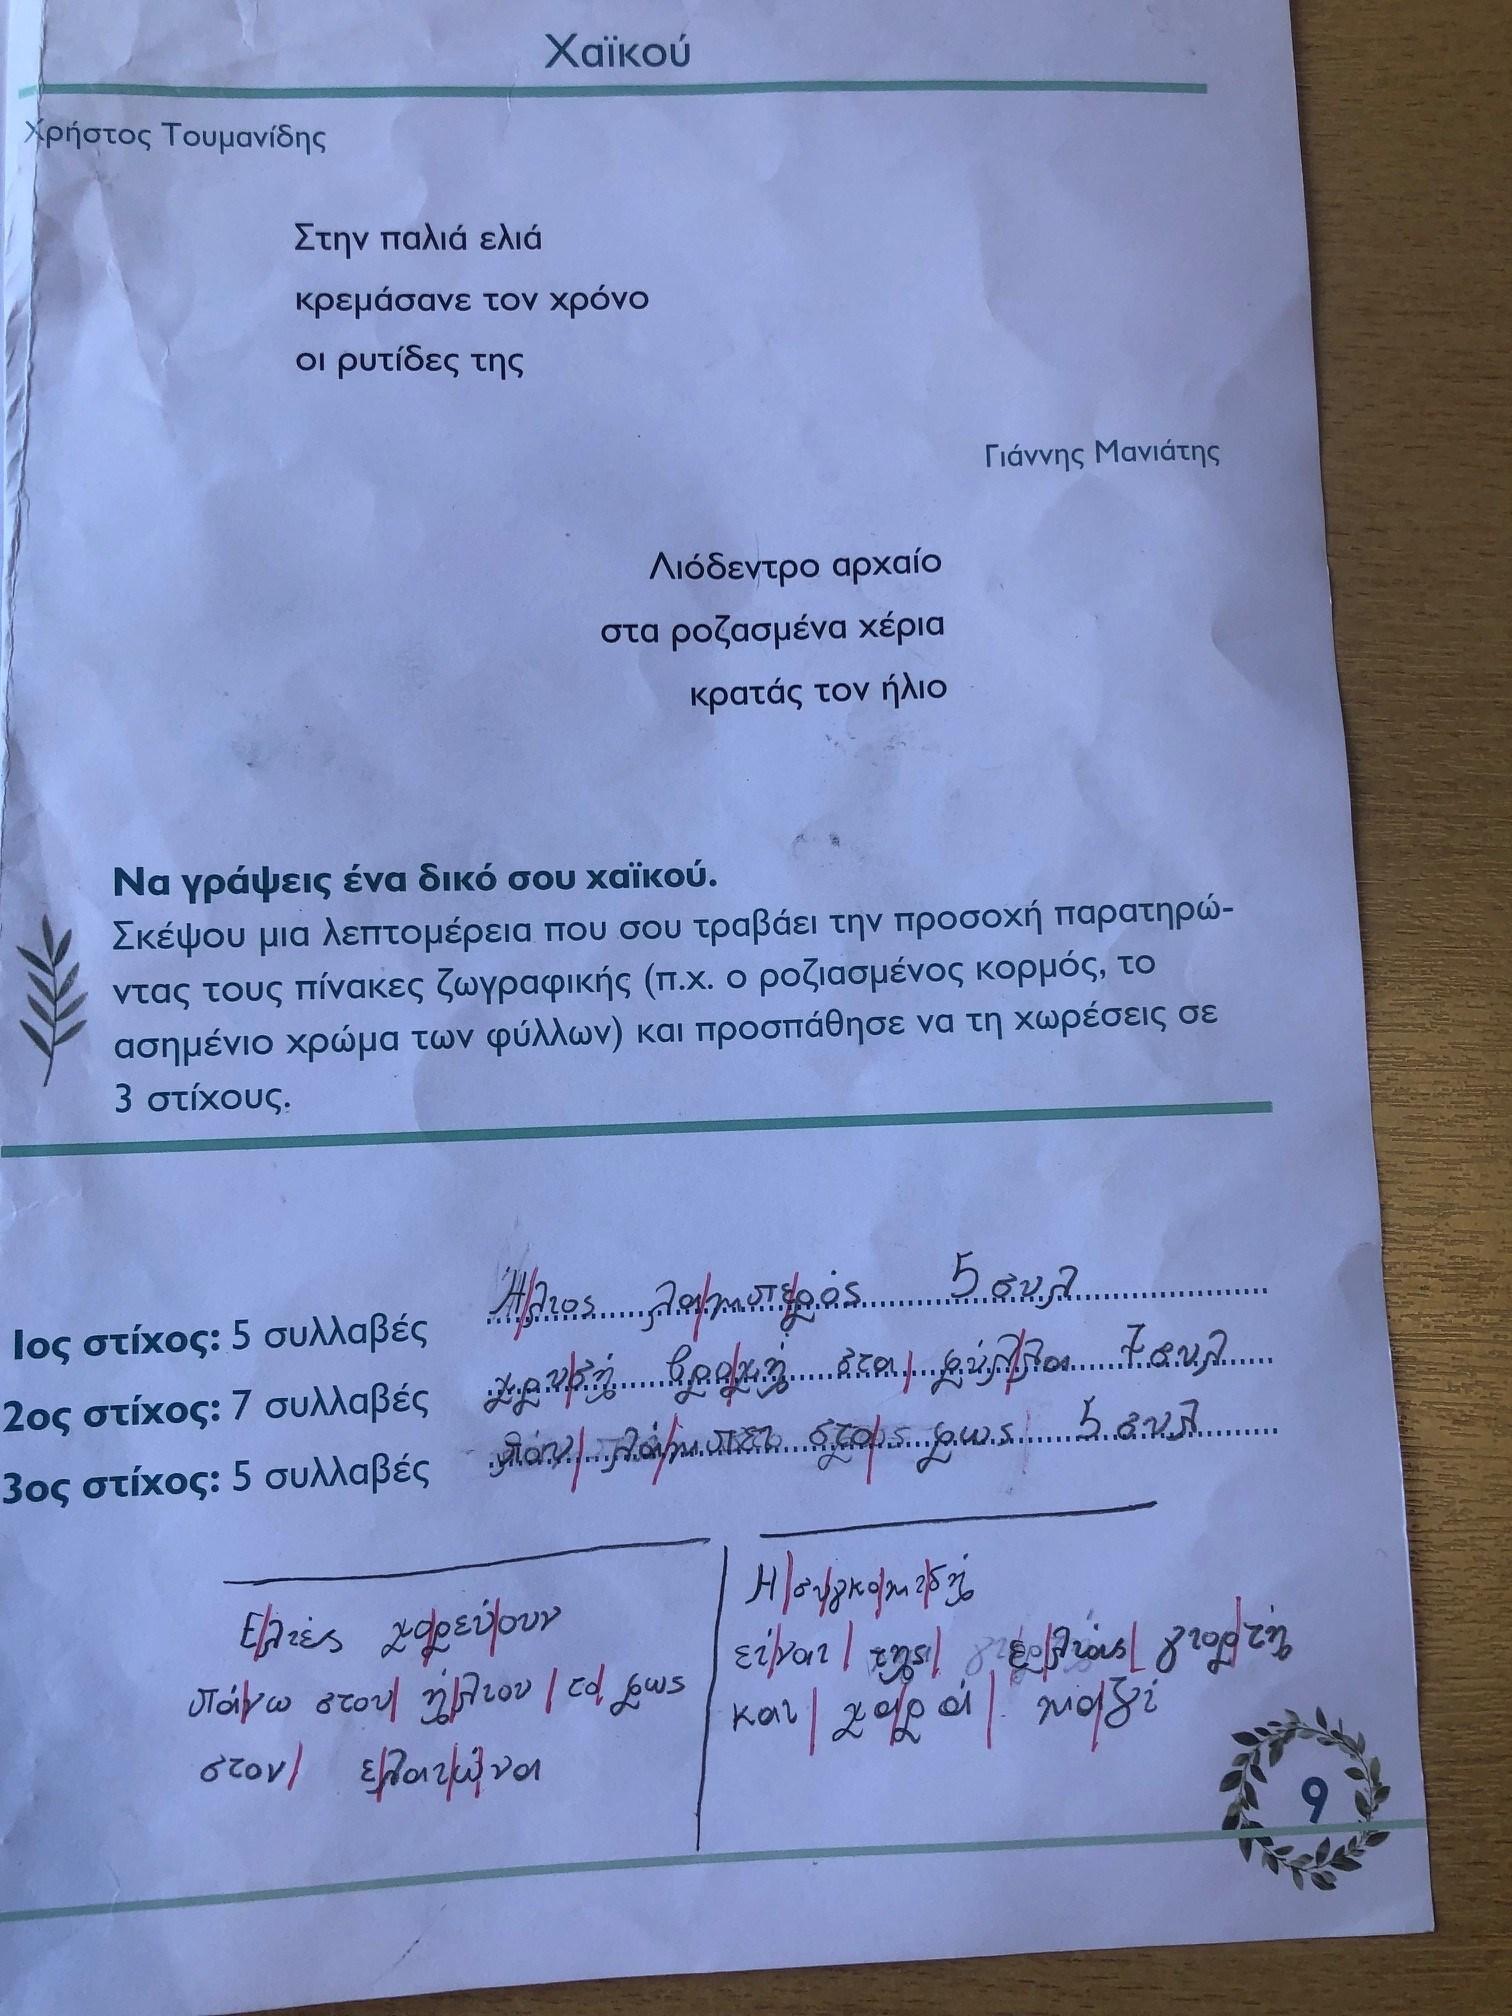 Χαϊκού
Χρήστος Τουμανίδης
Στην παλιά ελιά
κρεμάσανε τον χρόνο
οι ρυτίδες της
Γιάννης Μανιάτης
Λιόδεντρο αρχαίο
στα ροζασμένα χέρια
κρατάς τον ήλιο
Να γράψεις ένα δικό σου χαϊκού.
Σκέψου μια λεπτομέρεια που σου τραβάει την προσοχή παρατηρώ-
ντας τους πίνακες ζωγραφικής (π.χ. ο ροζιασμένος κορμός, το
ασημένιο χρώμα των φύλλων) και προσπάθησε να τη χωρέσεις σε
3 στίχους.
1ος στίχος: 5 συλλαβές Ή/λιος λα/μπε/ρός 5 συλ
2ος στίχος: 7 συλλαβές χρυ/σή βρο/χή στα/ φύλ/λα 7 συλ
3ος στίχος: 5 συλλαβές λάμ/πει στο/ φως 5 συλ
Ε/λιές χο/ρεύ/ουν
πά/νω στου/ ή/λιου/ το/ φως
στον/ ε/λαι/ώ/να
Η/ συ/γκο/μι/δή
εί/ναι/ της/ ε/λιάς/ γιορ/τή
και/ χα/ρά/ μα/ζί
9